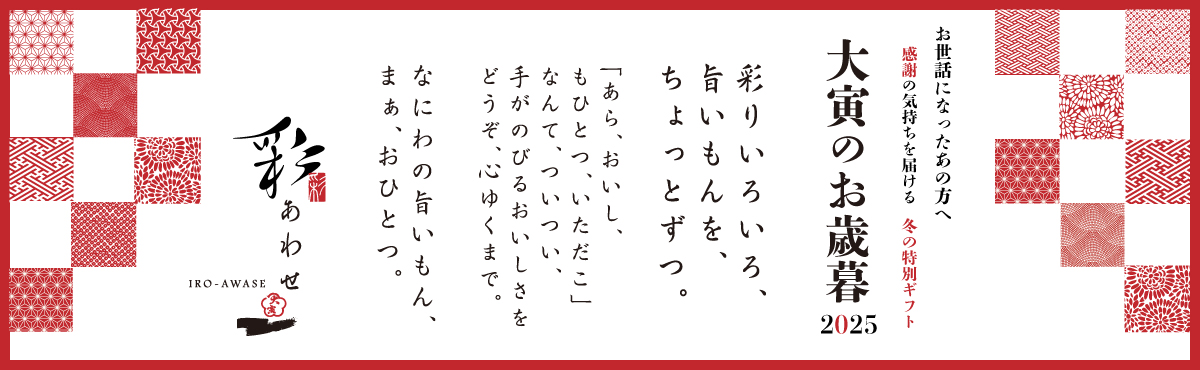 お世話になったあの方へ
感謝の気持ちを届ける 冬の特別ギフト
大寅のお歳暮
2025
彩りいろいろ、
旨いもんを、
ちょっとずつ。
「あら、おいし、
もひとつ、いただこ」
なんて、ついつい、
手がのびるおいしさを
どうぞ、心ゆくまで。
なにわの旨いもん、
まぁ、おひとつ。
彩
あわせ
IRO-AWASE
大寅